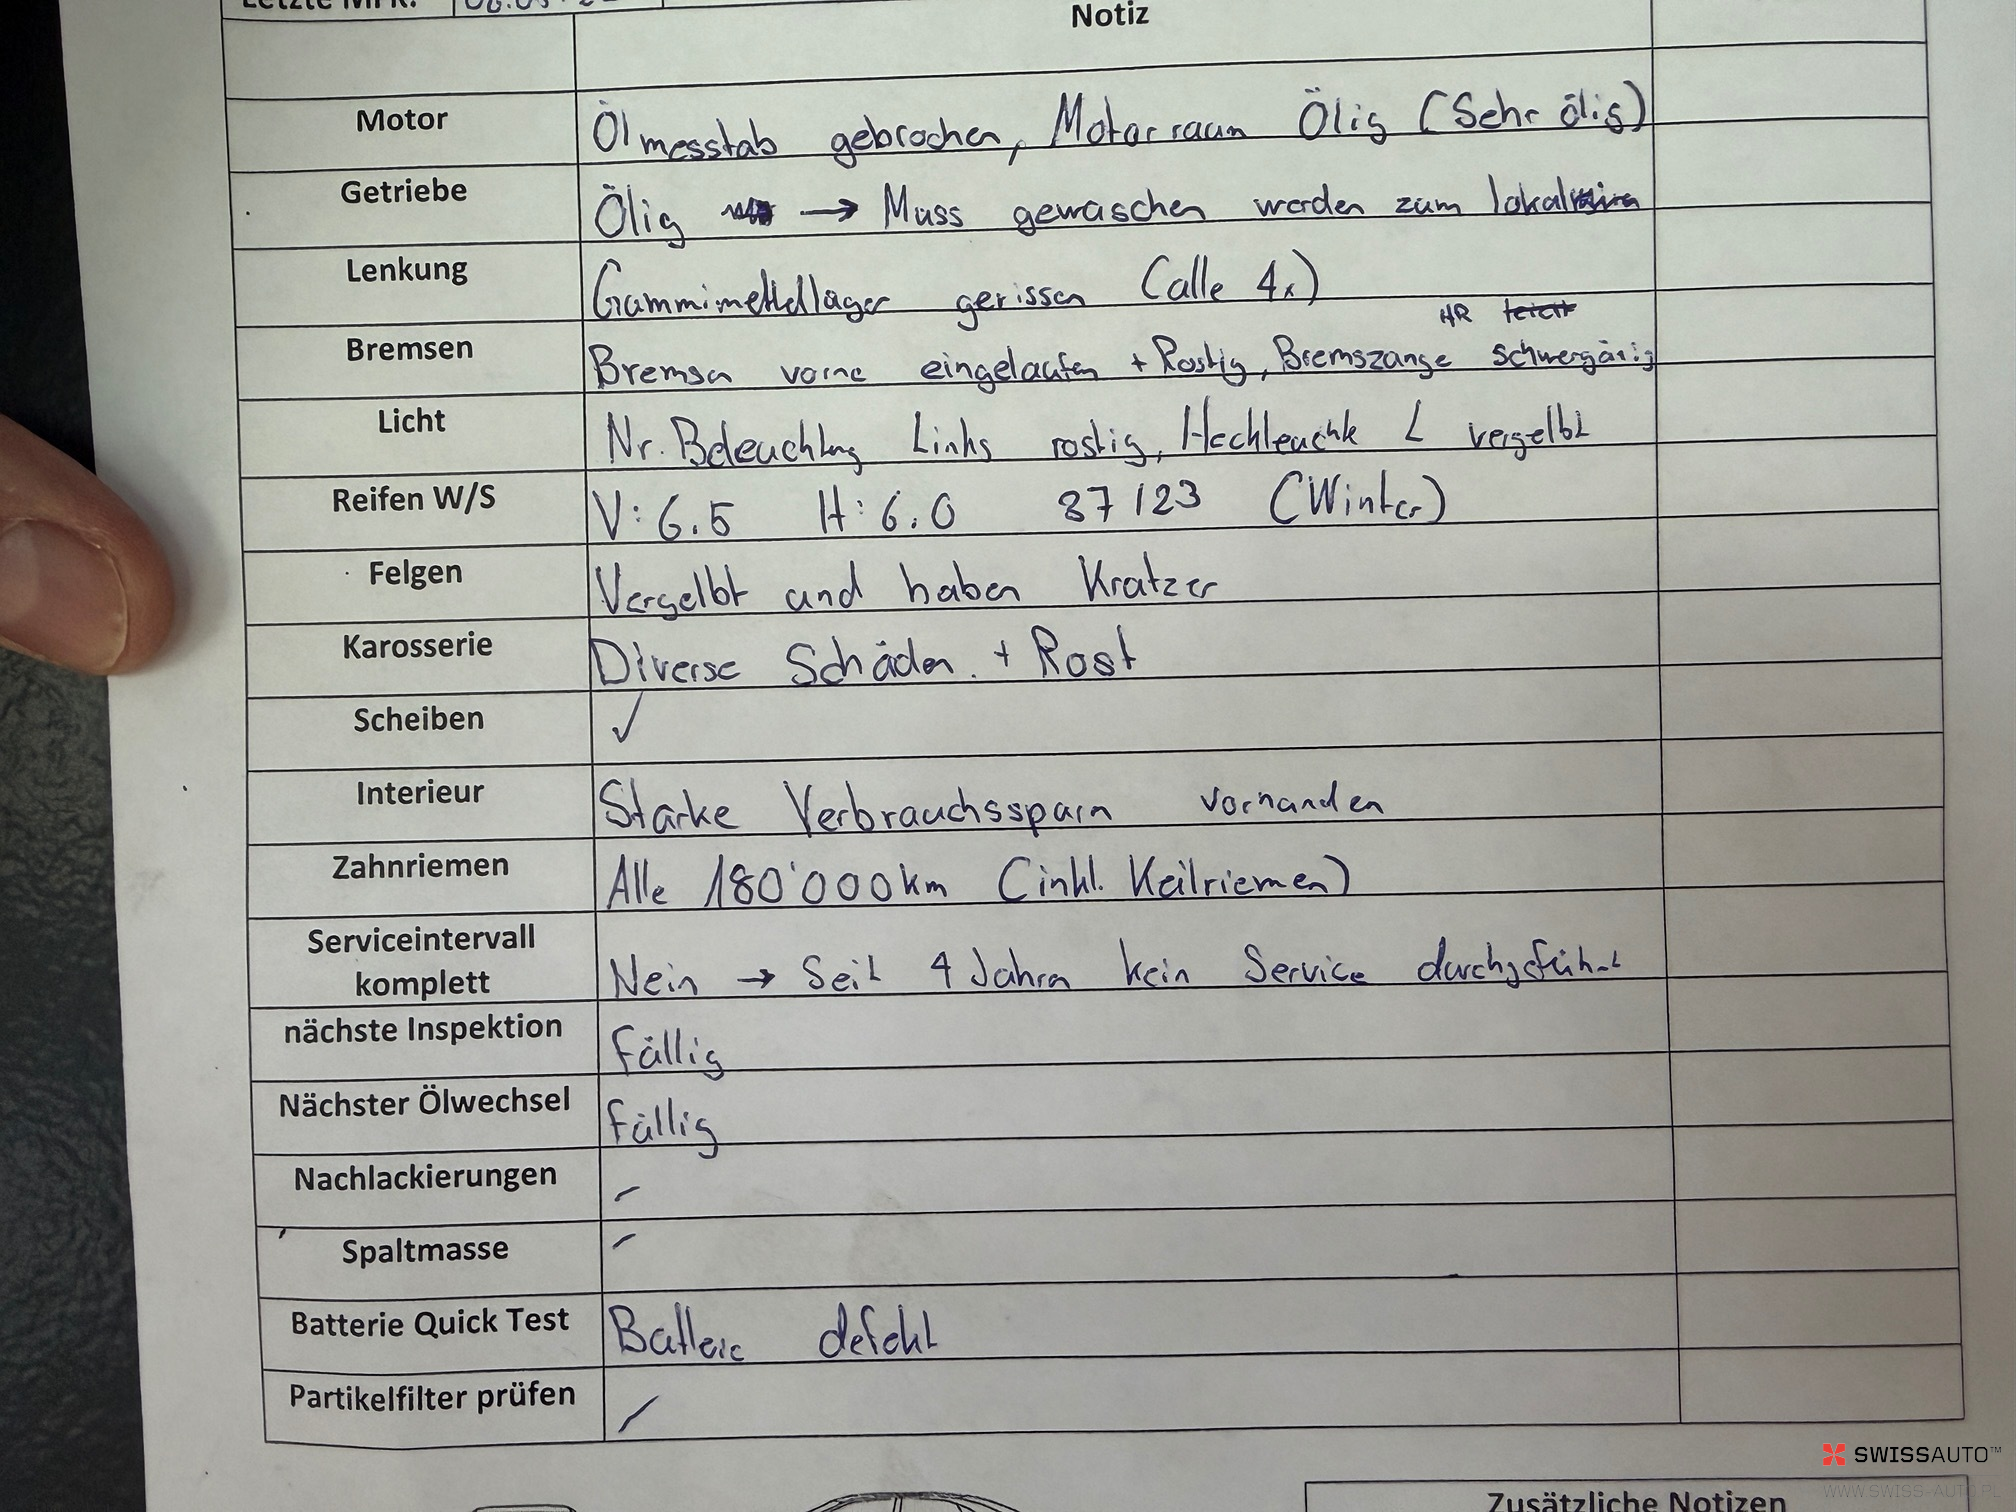 Letzte MFK:
Notiz
Motor Ölmesstab gebrochen, Motorraum Ölig (Sehr ölig)
Getriebe Ölig → Muss gewaschen werden zum
Lenkung Gummimetallager gerissen (alle 4x)
HR leicht
Bremsen Bremsen vorne eingelaufen + Rostig, Bremszange schwergängig
Licht Nr. Beleuchtung Links rostig, Heckleuchte L vergelbt
Reifen W/S V: 6.5 H: 6.0 37/23 (Winter)
Felgen Vergelbt und haben Kratzer
Karosserie Diverse Schäden. + Rost
Scheiben ✓
Interieur Starke Verbrauchsspurn vorhanden
Zahnriemen Alle 180'000km (inkl. Keilriemen)
Serviceintervall
komplett Nein → Seit 4 Jahren kein Service durchgeführt
nächste Inspektion Fällig
Nächster Ölwechsel Fällig
Nachlackierungen -
Spaltmasse -
Batterie Quick Test Batterie defekt
Partikelfilter prüfen /
SWISSAUTO™
WWW.SWISS-AUTO.PL
Zusätzliche Notizen